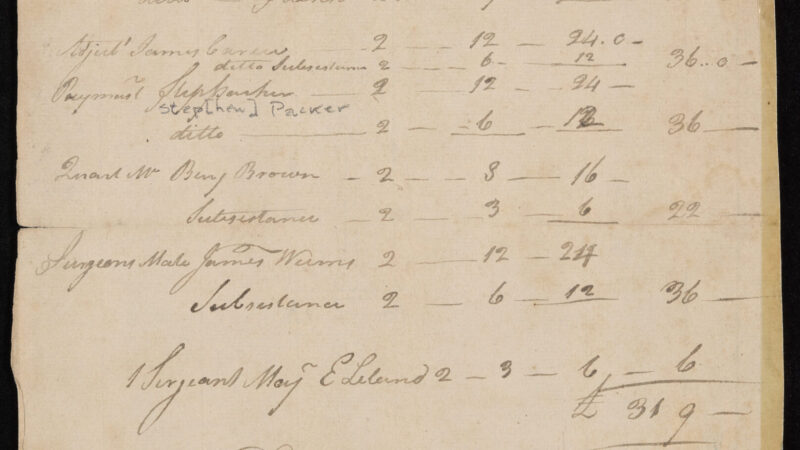 ditto
Adjut James — 2 — 12 — 24.0 —
ditto Subsistance 2 — 6 — 12 36..0 —
Paymastr Step Packer — 2 — 12 — 24 —
Step[hen] Packer
ditto — 2 — 6 — 12 36 —
Quart Mr Benj Brown — 2 — 8 — 16 —
Subsistance — 2 — 3 — 6 22 —
Surgeons Mate James Weems 2 — 12 — 24
Subsistance 2 — 6 — 12 36 —
1 Sergeant Majr E Leland 2 — 3 — 6 — 6
£ 319 —